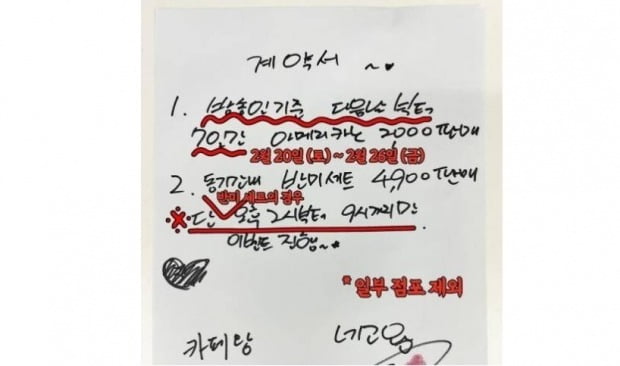 계약서 ~.
1. 방송일기준 다음날 부터
7일간 아메리카노 2,000 판매
2월 20일 (토) ~ 2월 26일 (금)
2. 동기간내 반미세트 4,900 판매
반미 세트의 경우
※ 단 오후 2시부터 9시까지만.
이벤트 진행~.
* 일부 점포 제외
카페
네고왕